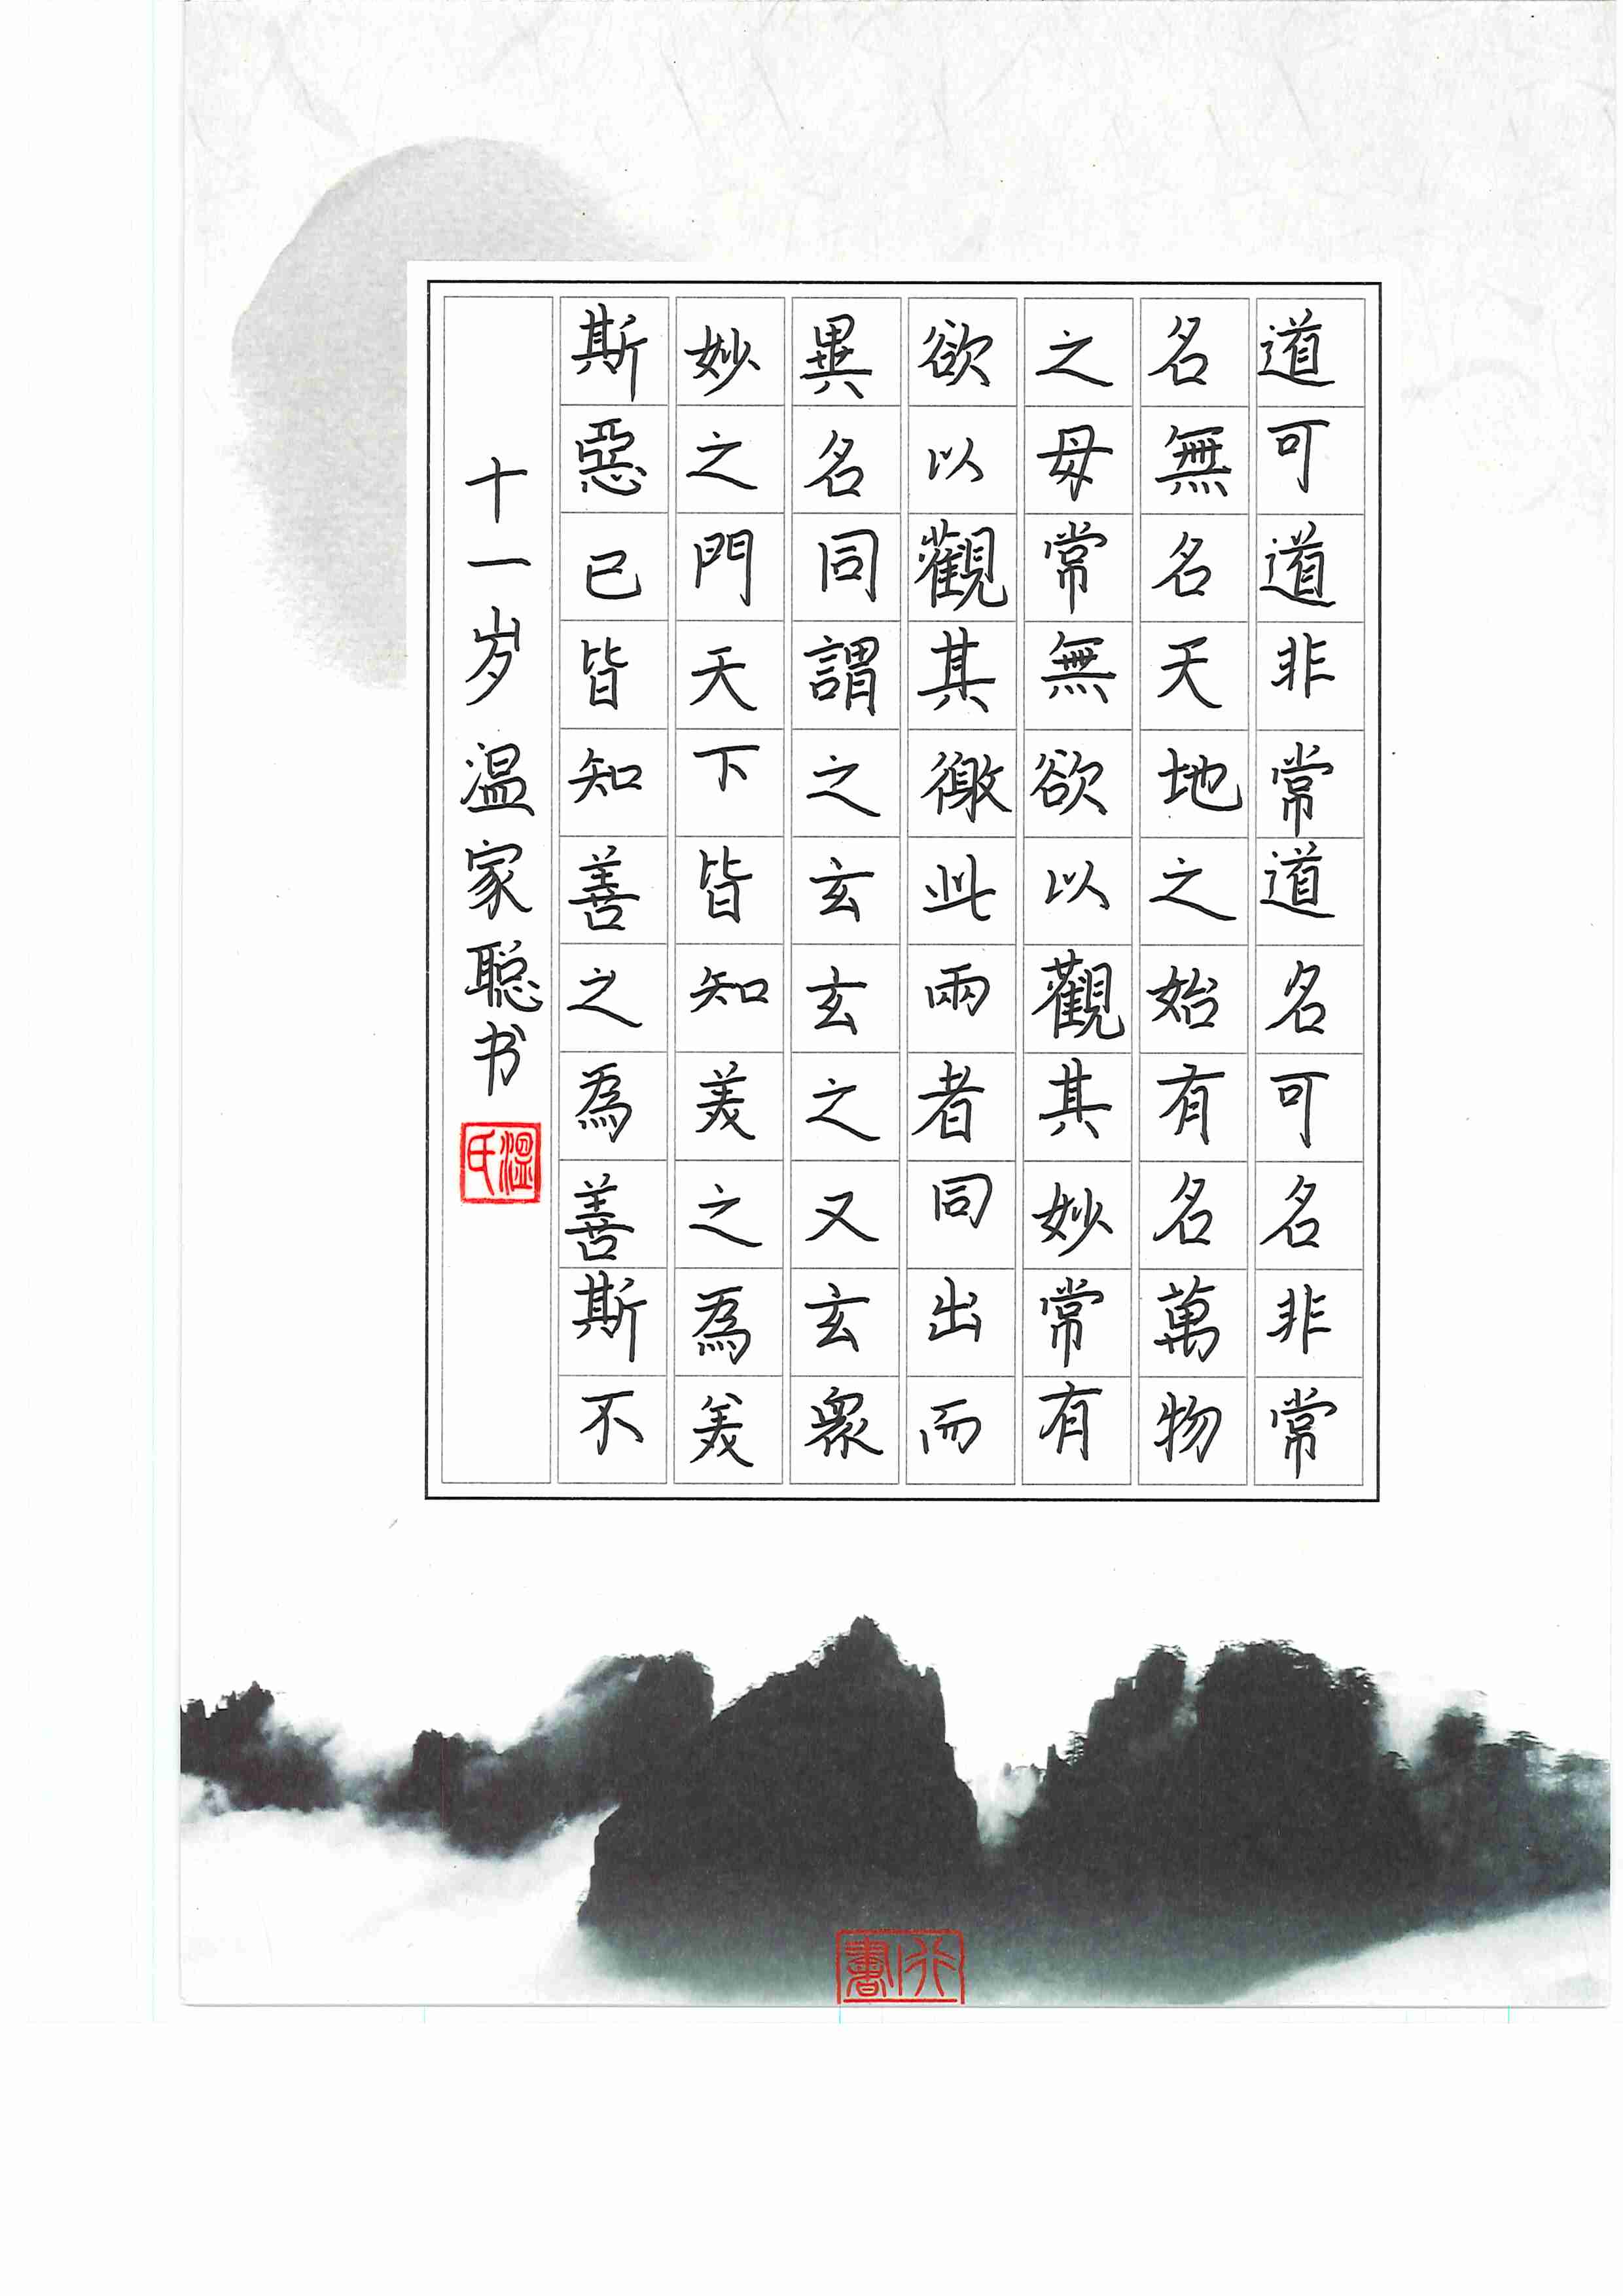 道可道非常道名可名非常
名無名天地之始有名萬物
之母常無欲以觀其妙常有
欲以觀其徼此兩者同出而
異名同謂之玄玄之又玄衆
妙之門天下皆知美之為美
斯惡已皆知善之為善斯不
十一岁温家聪书
溫氏
行書